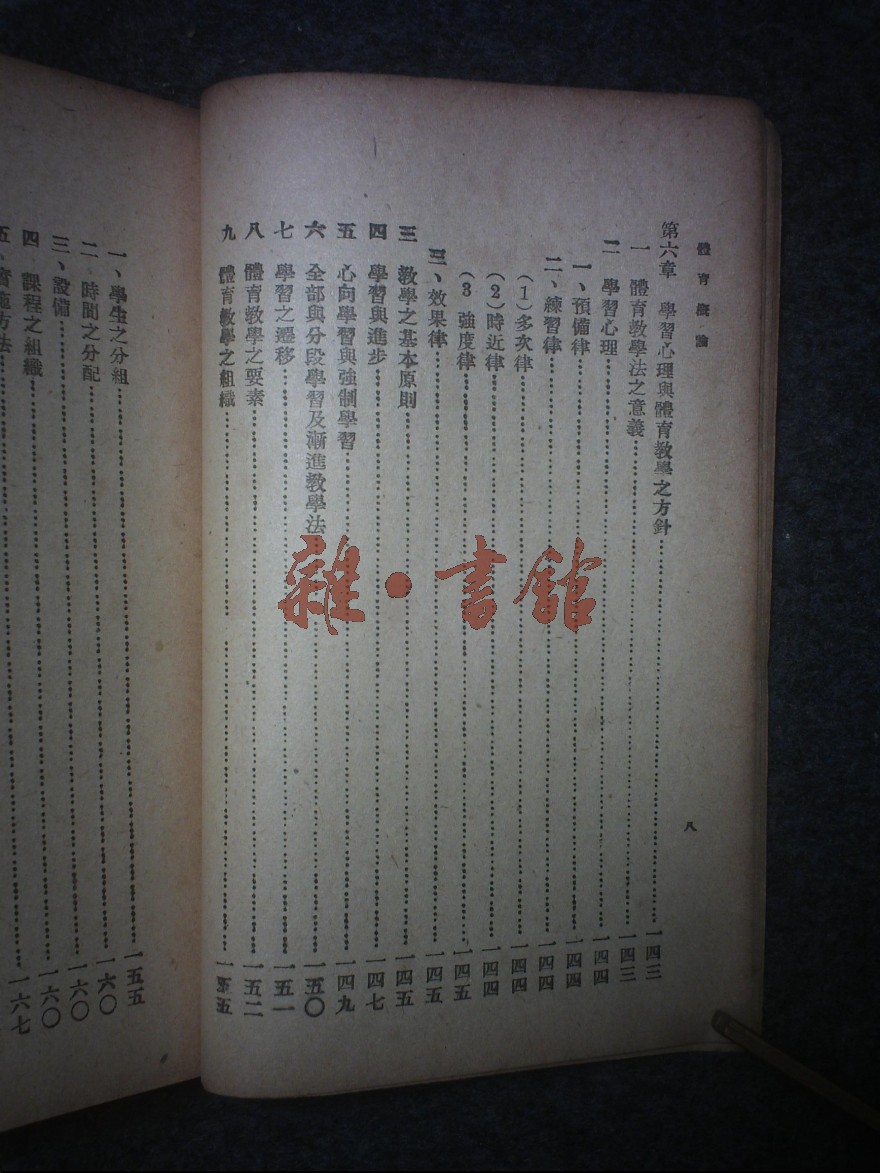 體育概論
八
第六章 學習心理與體育教學之方針……一四三
一 體育教學法之意義……一四三
二 學習心理……一四四
一、預備律……一四四
二、練習律……一四四
(1)多次律……一四四
(2)時近律……一四四
(3)強度律……一四五
三、效果律……一四五
三 教學之基本原則……一四五
四 學習與進步……一四七
五 心向學習與強制學習……一四九
六 全部與分段學習及漸進教學法……一五〇
七 學習之遷移……一五一
八 體育教學之要素……一五二
九 體育教學之組織……一五五
一、學生之分組……一五五
二、時間之分配……一六〇
三、設備……一六〇
四 課程之組織……一六〇
五、實施方法……一六七
雜·書館